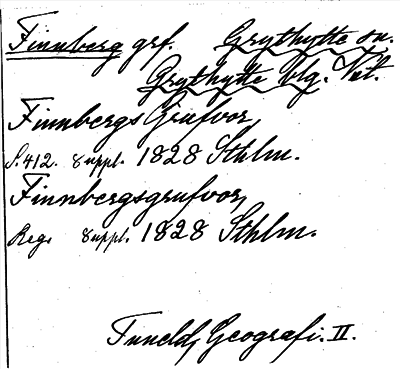 Finnberg grf. Grythytte sn.
Grythytte blg. Vstl.
Finnbergs Grufvor,
S. 412. Suppl. 1828 Sthlm.
Finnbergsgrufvor,
Reg. Suppl. 1828 Sthlm.
Tuneld, Geografi. II.